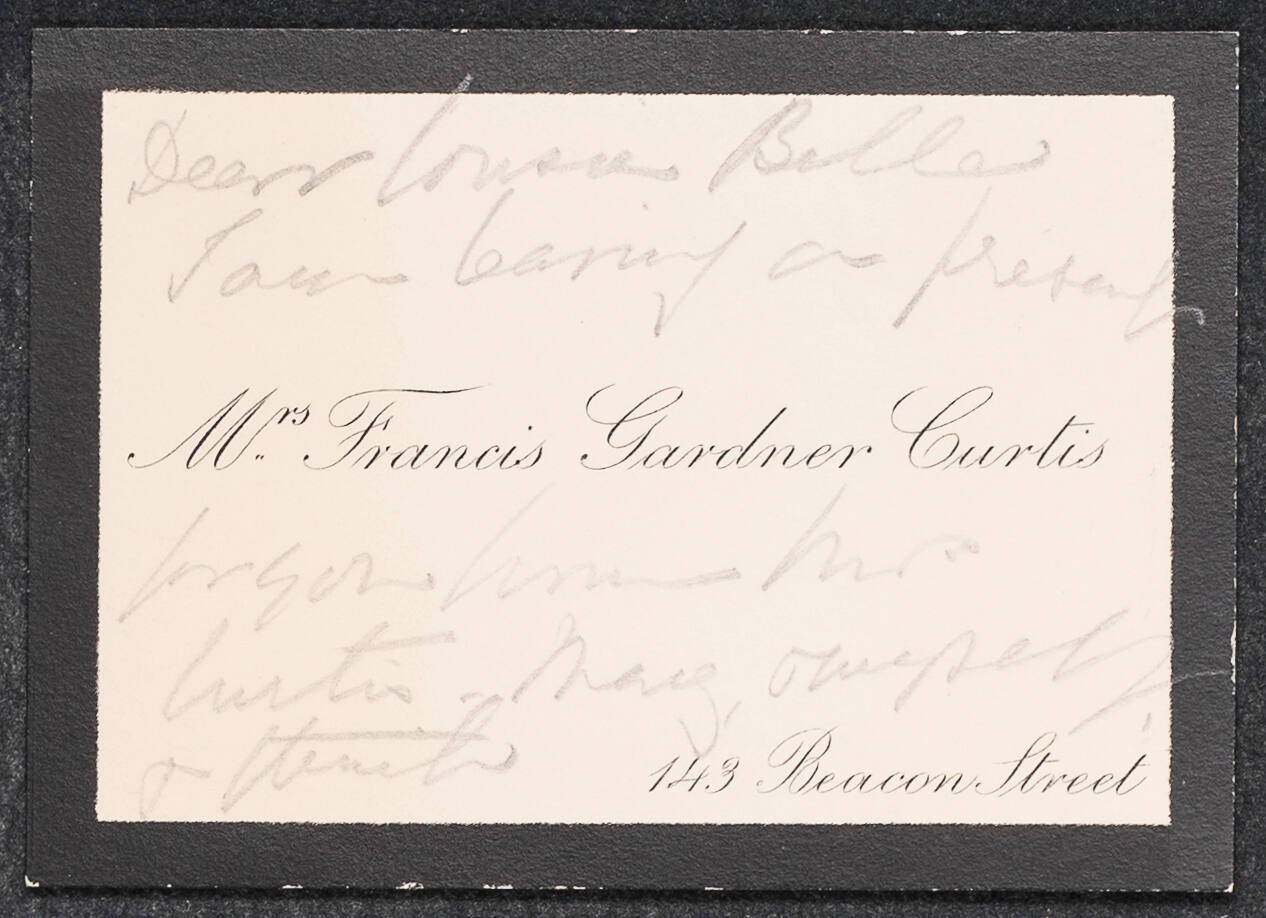 Dear Cousin Belle
I am leaving a present
Mrs Francis Gardner Curtis
for you from Mrs
Curtis - Marg, myself,
&
143 Beacon Street